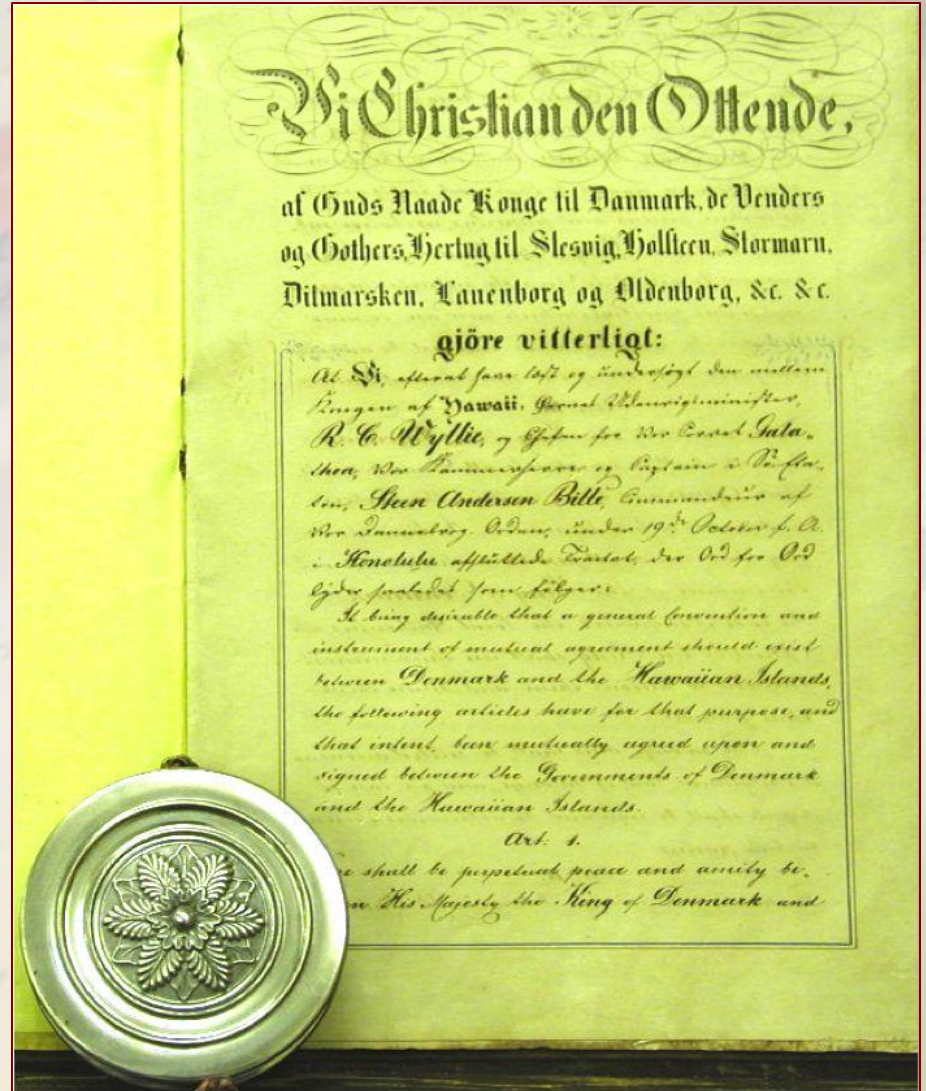 Vi Christian den Ottende,
af Guds Naade Konge til Danmark, de Venders
og Gothers, Hertug til Slesvig, Holsteen, Stormarn,
Ditmarsken, Lauenborg og Oldenborg, &c. &c.
gjöre vitterligt:
At Vi, efterat have læst og undersøgt den mellem
Kongen af Hawaii, Udenrigsminister,
R. C. Wyllie, og Chefen for Vor Corvet Gala-
thea, Vor Kammerherre og Captain i Söeta-
ten, Steen Andersen Bille, Commandeur af
Vor Dannebrog Orden, under 19de October f. A.
i Honolulu afsluttede Tractat, der Ord for Ord
lyder saaledes som følger:
It being desirable that a general Convention and
instrument of mutual agreement should exist
between Denmark and the Hawaiian Islands,
the following articles have for that purpose, and
that intent, been mutually agreed upon and
signed between the Governments of Denmark
and the Hawaiian Islands.
Art: 1.
re shall be perpetual peace and amity be-
n His Majesty the King of Denmark and